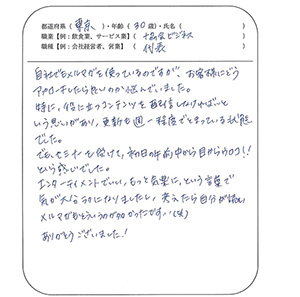 都道府県( 東京 )・年齢( 30 歳)・氏名(　　　)
職業【例:飲食業、サービス業】( 協会ビジネス
職種【例:会社経営者、営業】( 代表
自社でもメルマガを使っているのですが、お客様にどう
アプローチしたら良いのか悩んでいました。
特に、役に立つコンテンツを配信しなければ…と
いう思いがあり、更新も週一程度でとまっている状態
でした。
でも、セミナーを受けて、初日の午前中から目からウロコ!
という感じでした。
エンターテイメントでいい、もっと気楽に、という言葉で
気が大分ラクになりましたし、考えたら自分が読む
メルマガもそういうのが多かったです…(笑)
ありがとうございました!